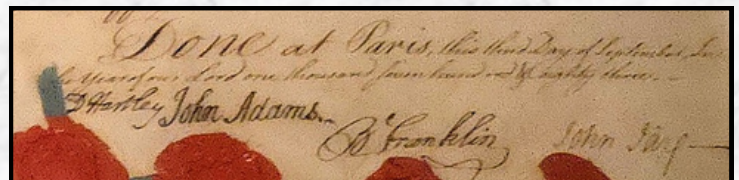 Done at Paris, this third Day of September, In
the Year of our Lord one thousand seven hundred & eighty three. –
D Hartley John Adams.
B Franklin John Jay –